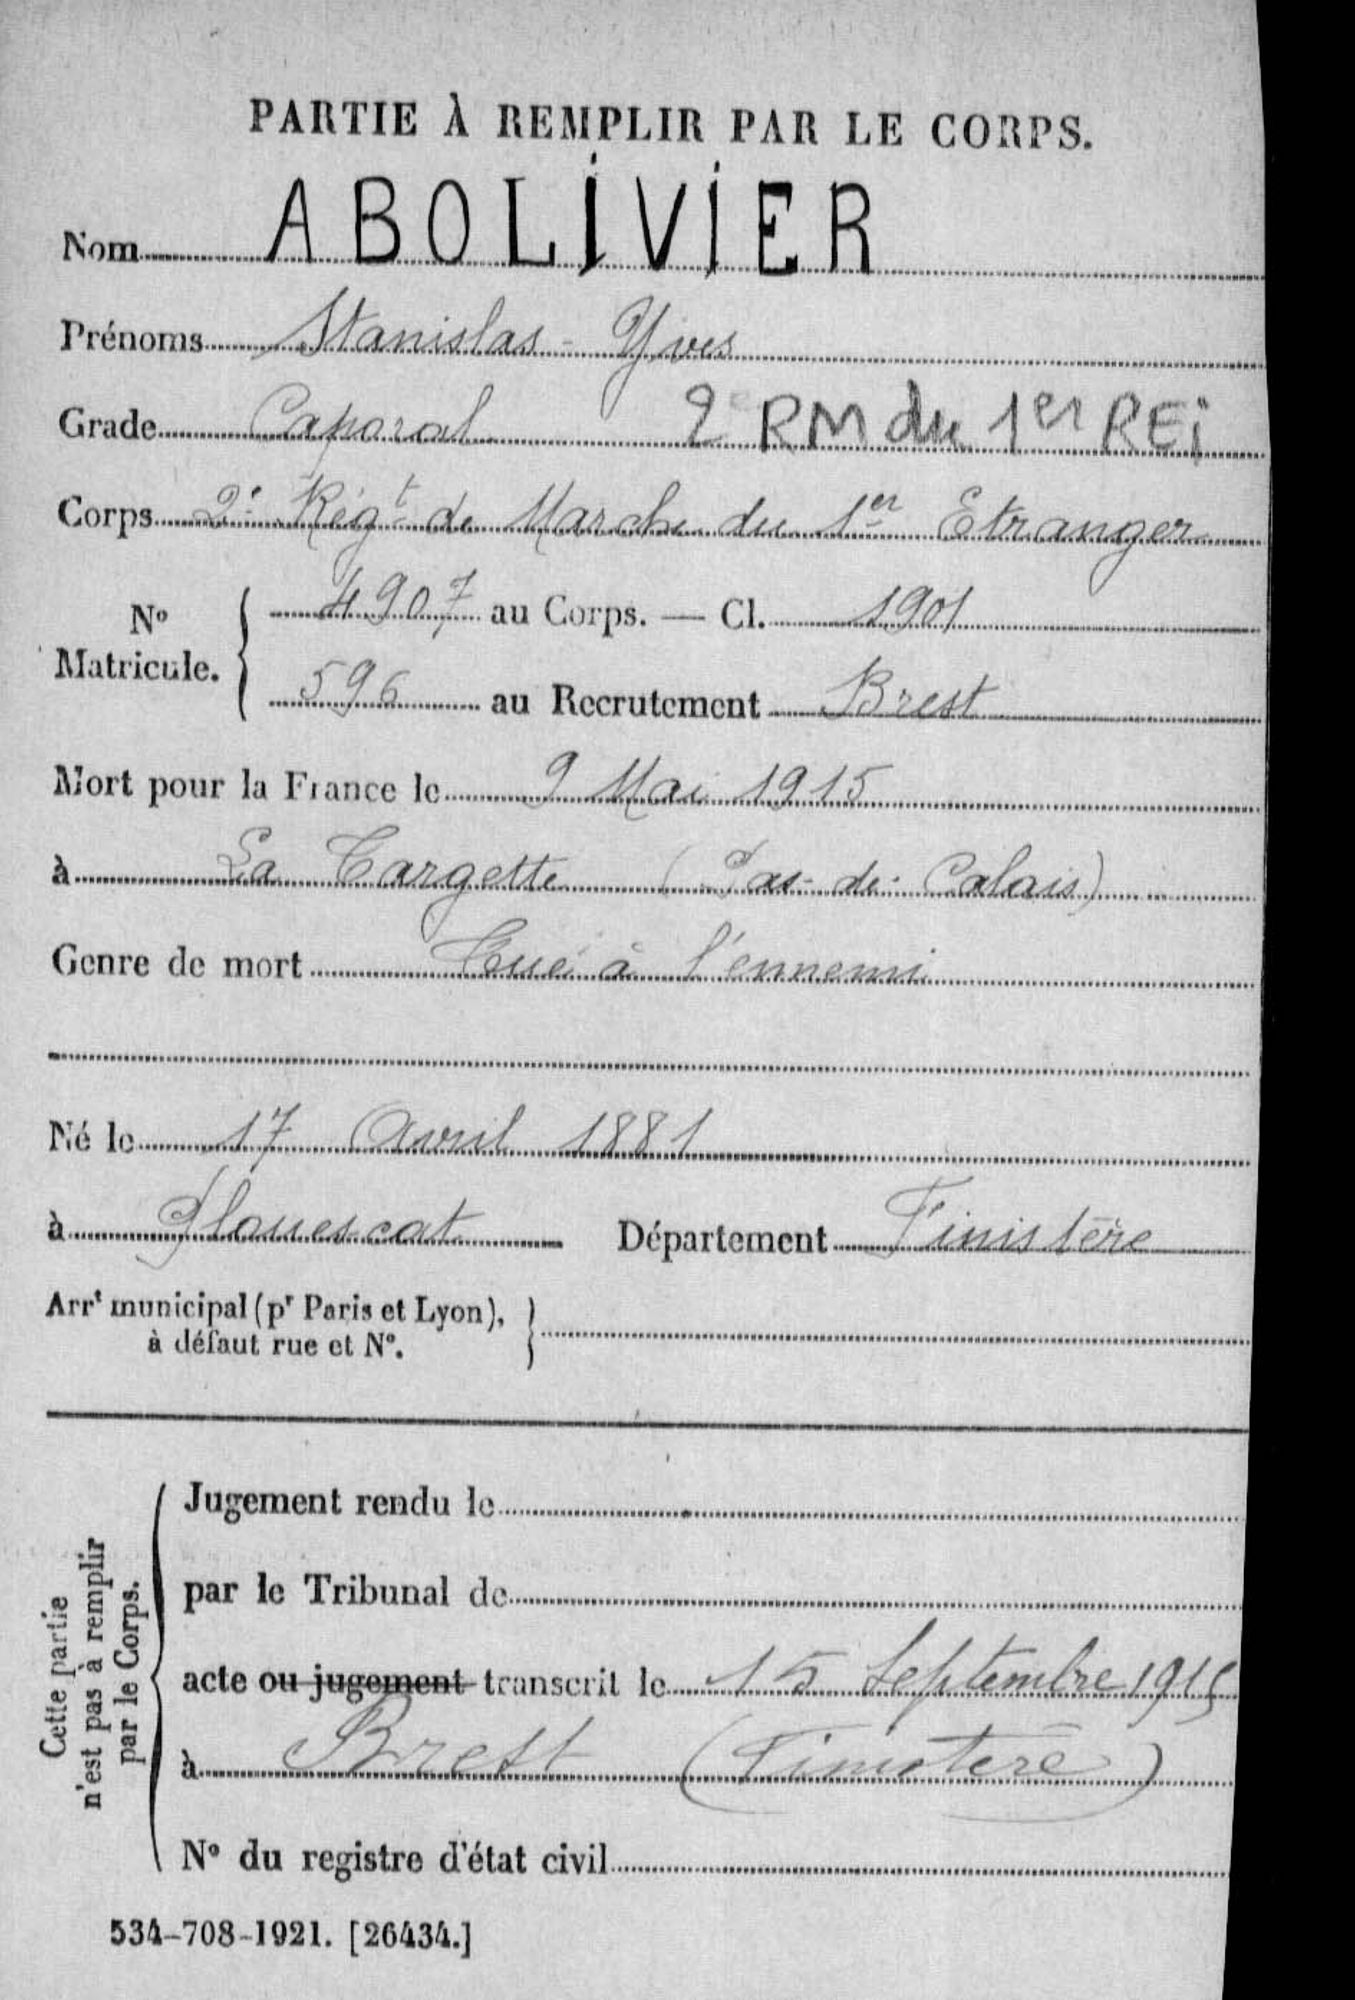 PARTIE À REMPLIR PAR LE CORPS.
Nom ABOLIVIER
Prénoms Stanislas - Yves
Grade Caporal 2e RM du 1er REi
Corps 2e Régt de Marche du 1er Etranger
No Matricule. 4907 au Corps. — Cl. 1901
596 au Recrutement Brest
Mort pour la France le 9 Mai 1915
à La Targette (Pas-de-Calais)
Genre de mort Tué à l'ennemi
Né le 17 Avril 1881
à Plouescat Département Finistère
Arrt municipal (pr Paris et Lyon),
à défaut rue et No.
Cette partie
n'est pas à remplir
par le Corps.
Jugement rendu le
par le Tribunal de
acte ou jugement transcrit le 15 Septembre 1915
à Brest (Finistère)
No du registre d'état civil
534-708-1921. [26434.]